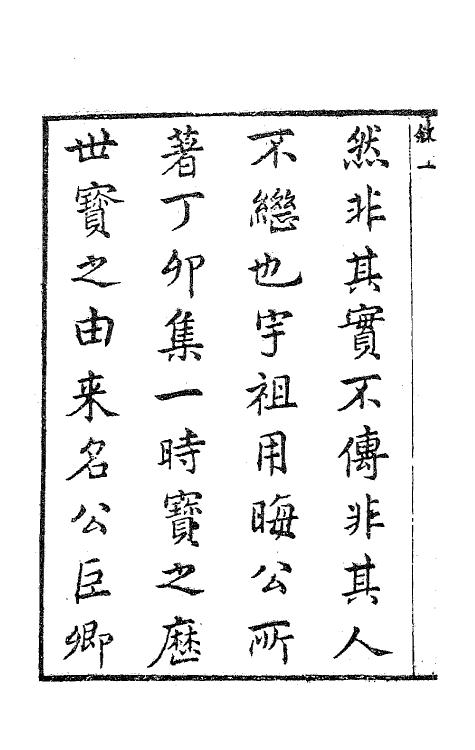 敘一
然非其實不傳非其人
不繼也宇祖用晦公所
著丁卯集一時寶之歷
世寶之由来名公臣卿